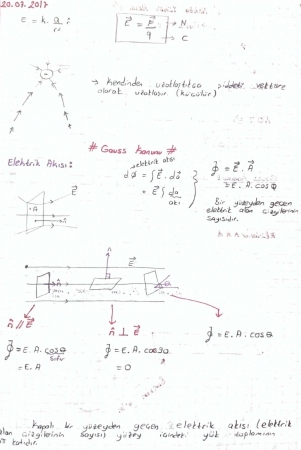 20.07.2017
E = k. Q/r²
E⃗ = F⃗/q → N → C
→ kendinden uzaklaştıkça şiddeti vektöre
olarak uzaklaşır. (küçülür)
# Gauss Kanunu #
Elektrik Akısı:
elektrik akısı
dϕ = ∫E⃗. da⃗
= E⃗ ∫ da
ϕ = E⃗. A⃗
= E. A. cosθ
Bir yüzeyden geçen
elektrik alan çizgilerinin
sayısıdır.
A
n⃗
E⃗
n⃗
E⃗
n⃗ // E⃗
n⃗ ⊥ E⃗
ϕ = E. A. cosθ
ϕ = E. A. cosθ
sıfır
= E. A
ϕ = E. A. cos90
= 0
Kapalı bir yüzeyden geçen elektrik akısı (elektrik
alan çizgilerinin sayısı) yüzey içindeki yük toplamının
katıdır.